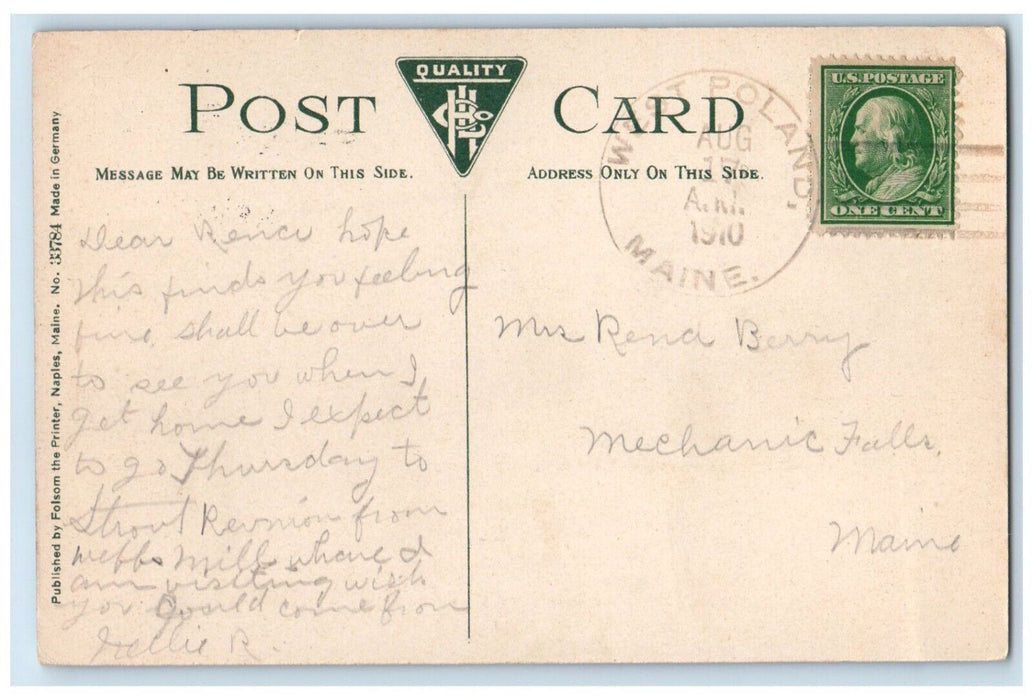 POST CARD
QUALITY
MESSAGE MAY BE WRITTEN ON THIS SIDE.
ADDRESS ONLY ON THIS SIDE.
WEST POLAND,
AUG
17
A.M.
1910
MAINE.
U.S. POSTAGE
ONE CENT
Published by Folsom the Printer, Naples, Maine. No. 33784 Made in Germany
Dear hope
this finds you feeling
fine, shall be over
to see you when I
get home I expect
to go Thursday to
Strout Reunion from
webbs Mill where I
am visiting wish
you could come from
Nellie R.
Mrs Berry
Mechanic Falls,
Maine